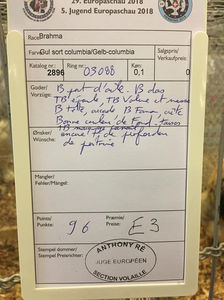 29. Europaschau 2018
5. Jugend Europaschau 2018
Race: Brahma
Farve: Gul sort columbia/Gelb-columbia
Salgspris/
Verkaufspreis:
Katalog nr.: 2896
RING 03088
Køn: 0,1
Goder/
Vorzüge:
B port d'aile. B dos
TB épaule, TB Volume et masse
B tête, arcade B Forme, crête
Bonne couleur de Fond, tarses
TB
Ønsker/
Wünsche:
de poitrine
Mangler/
Fehler/Mängel:
Points/
Punkte: 96
Præmie/
Preise: E3
Stempel dommer/
Stempel Preisrichter:
ANTHONY RÉ
JUGE EUROPÉEN
SECTION VOLAILLE